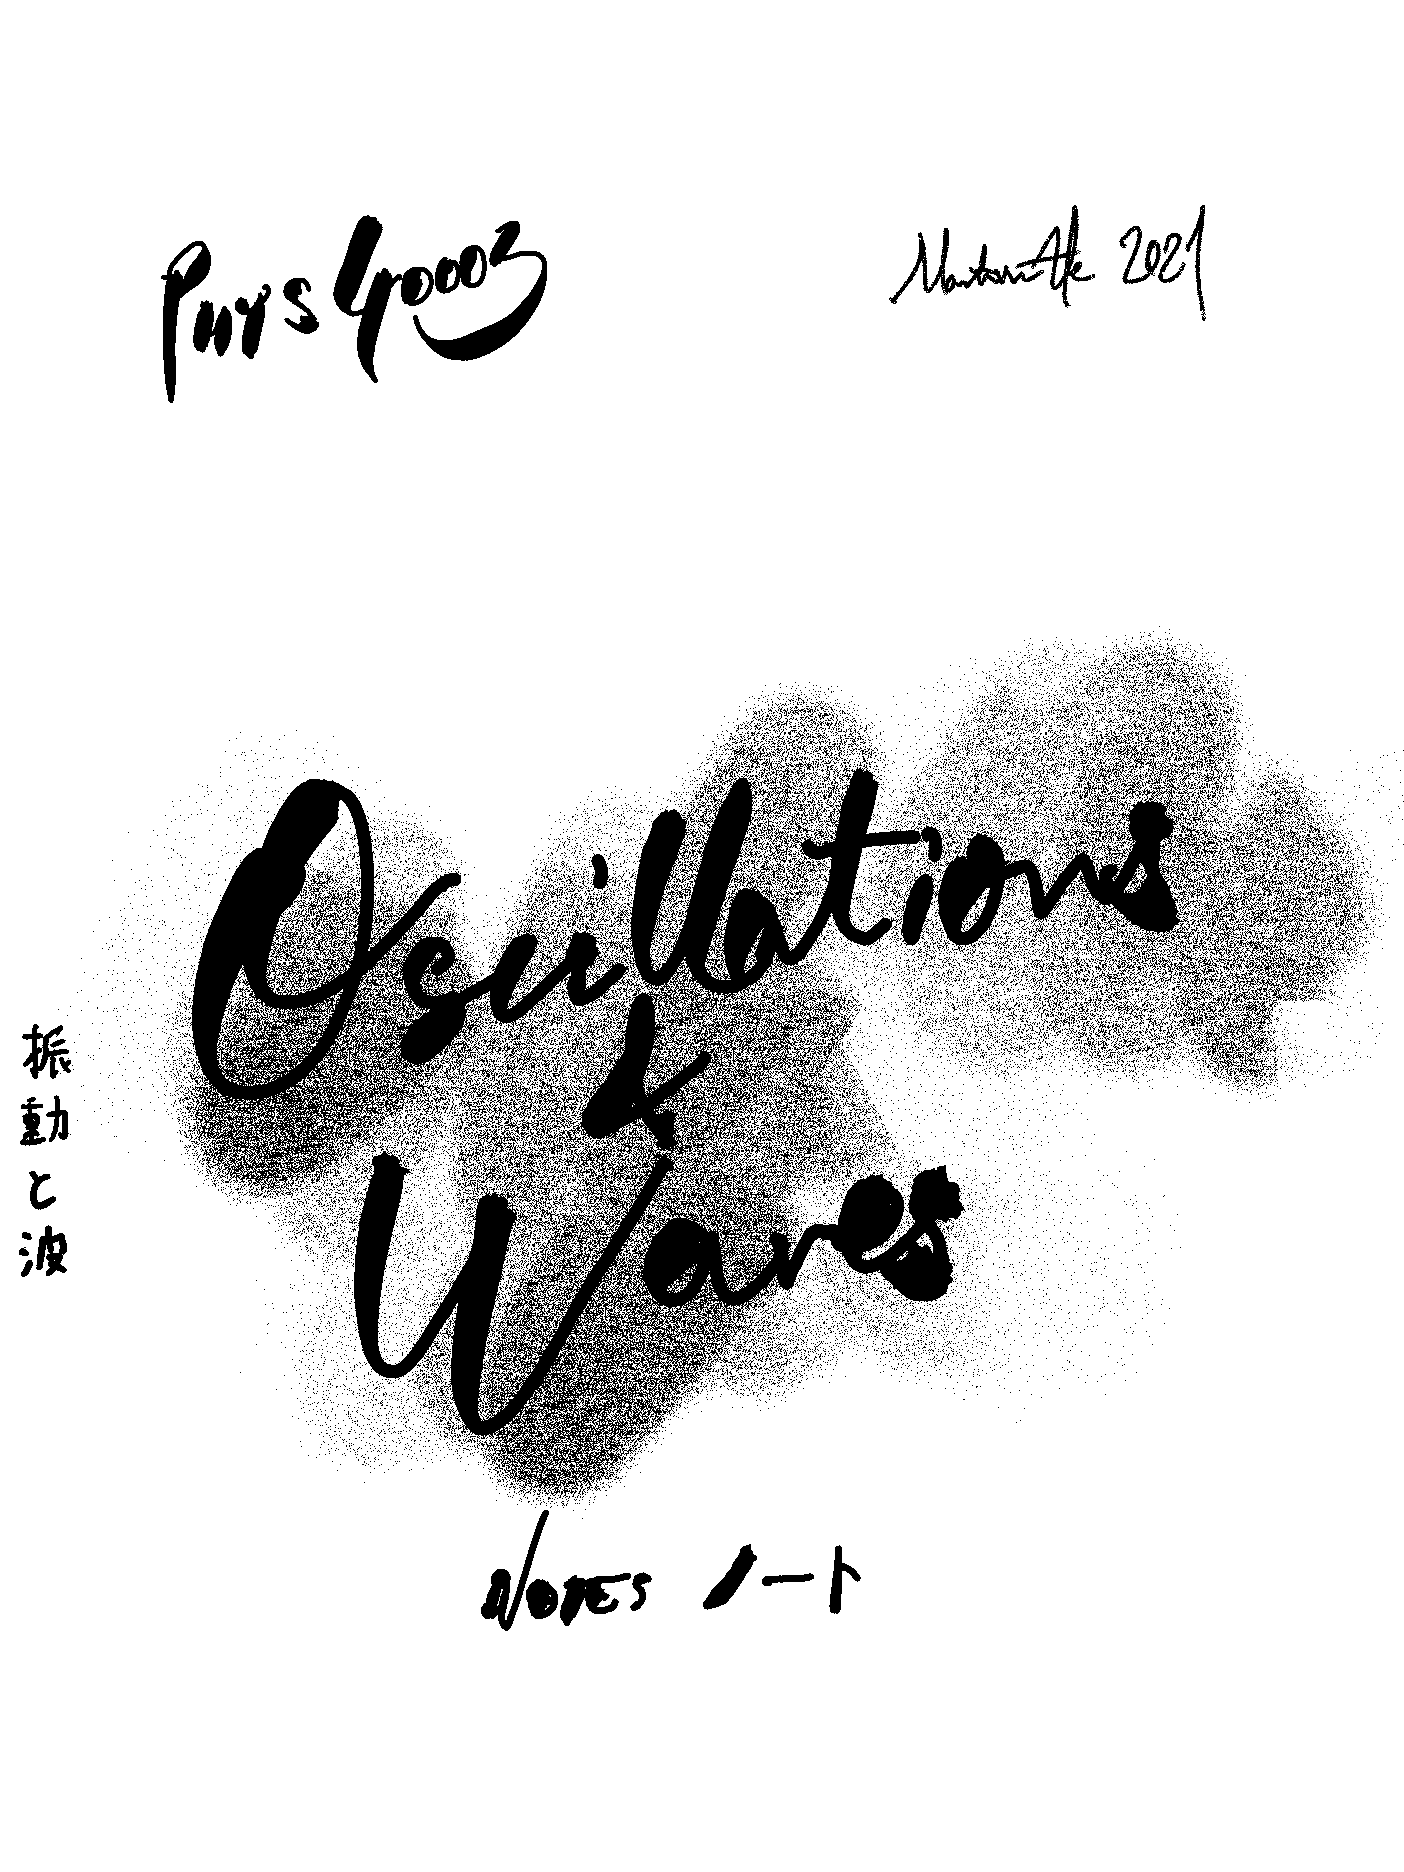 PHYS 40003
2021
Oscillations
&
Waves
振動と波
NOTES ノート